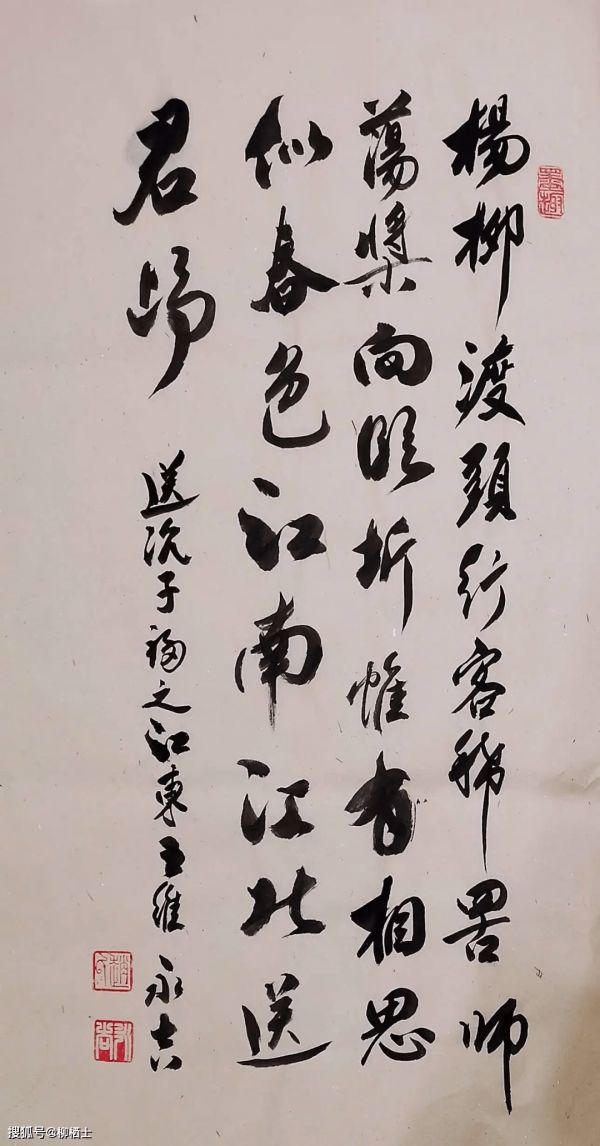 楊柳渡頭行客稀罟師
蕩槳向臨圻惟有相思
似春色江南江北送
君歸
送沈子福之江東王維 永吉
搜狐号@柳栖士